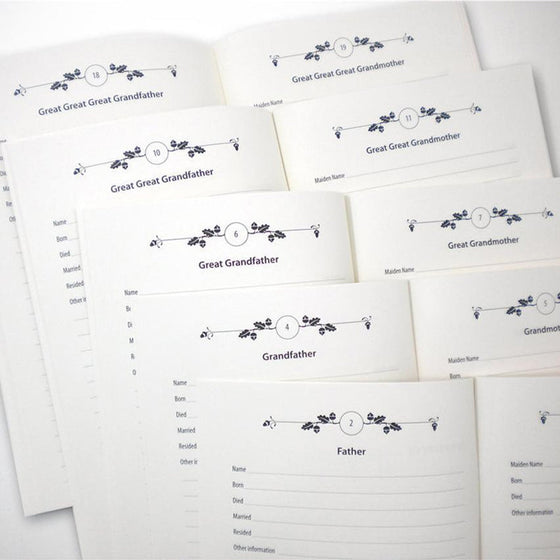 18
Great Great Great Grandfather
19
Great Great Great Grandmother
Maiden Name
10
Great Great Grandfather
Name
Born
Died
Married
Resided
Other in
11
Great Great Grandmother
Maiden Name
6
Great Grandfather
Name
7
Great Grandmother
Maiden Name
4
Grandfather
Name
Born
Died
Married
Resided
Other ir
5
Grandmot
Maiden Name
Born
2
Father
Name
Born
Died
Married
Resided
Other information
Maiden Name
Born
Died
Other information